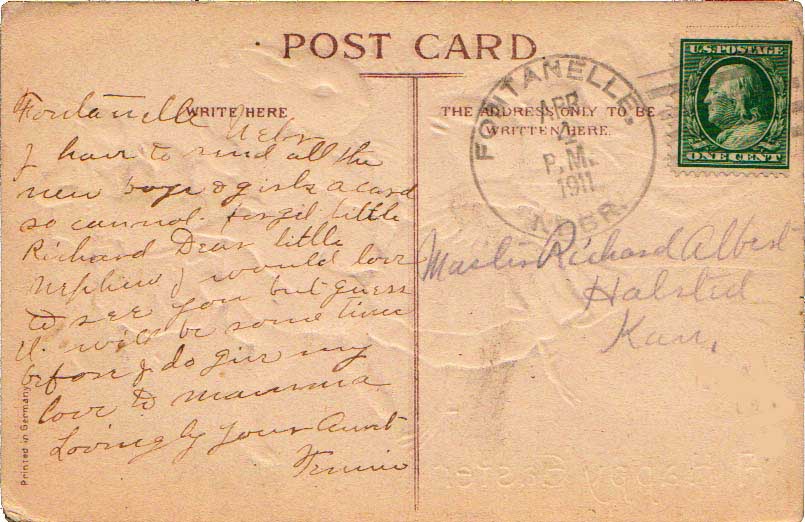 POST CARD
WRITE HERE
THE ADDRESS ONLY TO BE
WRITTEN HERE.
U.S. POSTAGE
ONE CENT
FONTANELLE,
APR
P.M.
1911
NEBR.
Fontanelle Nebr
I have to send all the
new boys & girls a card
so cannot forget little
Richard Dear little
nephew I would love
to see you but guess
it will be some time
before I do give my
love to mamma
Lovingly your Aunt
Master Richard Albert
Halsted
Kan,
Printed in Germany
Happy Easter